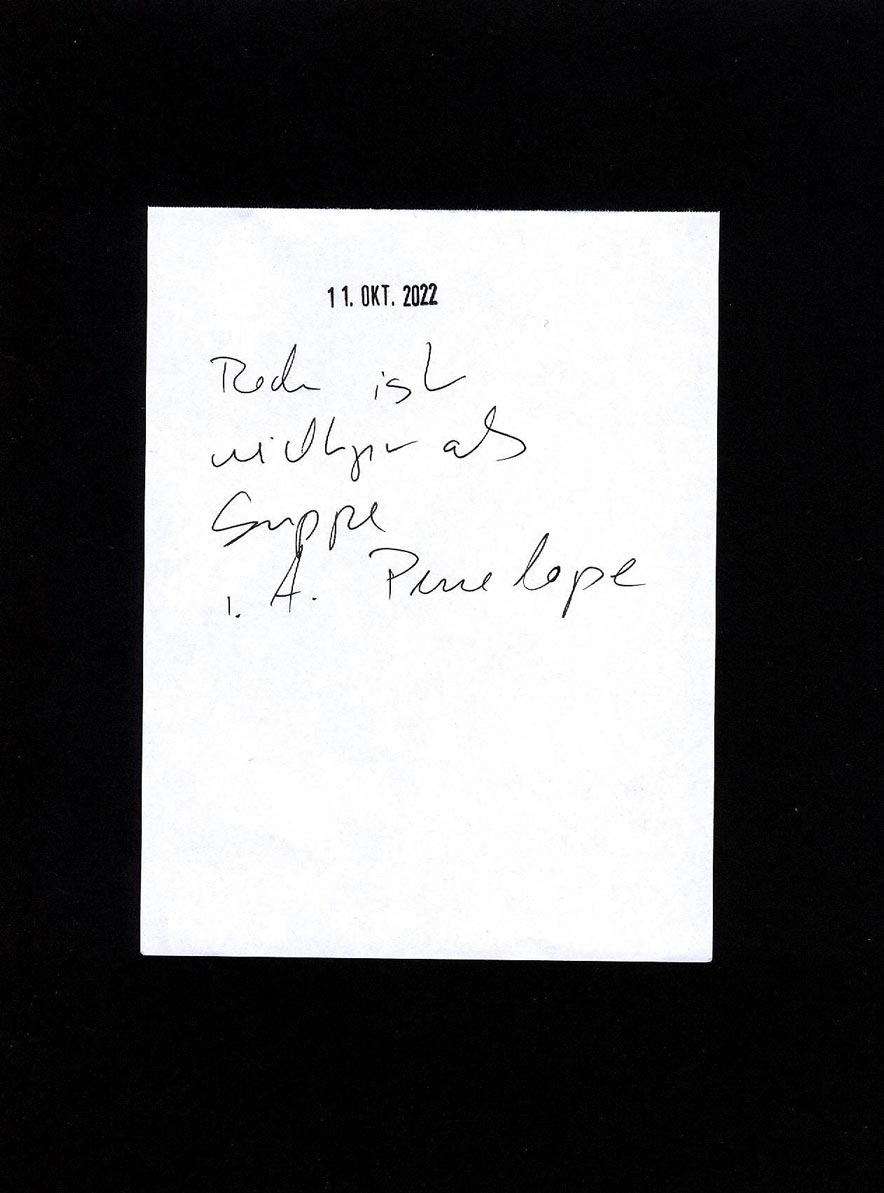 11. OKT. 2022
ist
wichtiger als
Suppe
i. A. Penelope